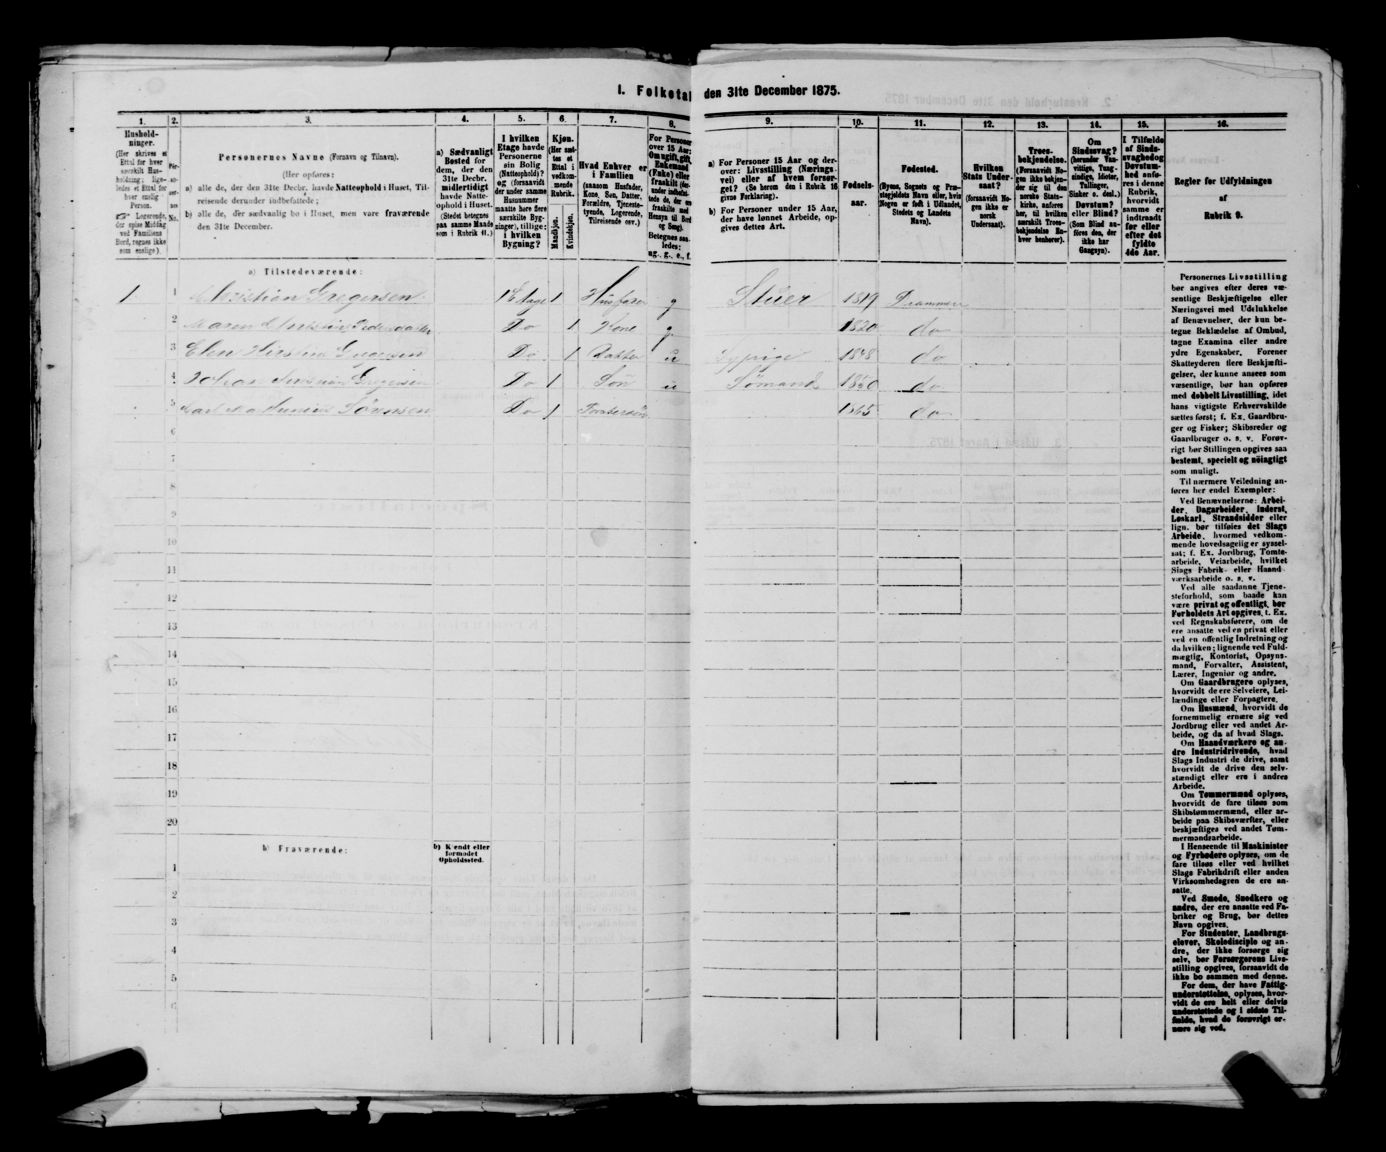 1. Folketal den 31te December 1875.
1. 2. 3. 4. 5. 6. 7. 8. 9. 10. 11. 12. 13. 14. 15. 16.
Hushold-
ninger.
(Her skrives et
Ettal for hver
særskilt Hus-
holdning; lige-
ledes et Ettal for
hver enslig
Person.
☞ Logerende,
der spise Middag
ved Familiens
Bord, regnes ikke
som enslige).
Personernes Navne (Fornavn og Tilnavn).
(Her opføres:
a) alle de, der den 31te Decbr. havde Natteophold i Huset, Til-
reisende derunder indbefattede;
b) alle de, der sædvanlig bo i Huset, men vare fraværende
den 31te December.
a) Sædvanligt
Bosted for
dem, der den
31te Decbr.
midlertidigt
havde Natte-
ophold i Huset.
(Stedet betegnes
paa samme Maade
som i Rubrik 11.)
I hvilken
Etage havde
Personerne
sin Bolig
(Natteophold)?
og (forsaavidt
der under samme
Husnummer
maatte høre flere
særskilte Byg-
ninger), tillige:
i hvilken
Bygning?
Kjøn.
(Her sæt-
tes et
Ettal i
vedkom-
mende
Rubrik.
Mandkjøn.
Kvindekjøn.
Hvad Enhver er
i Familien
(saasom Husfader,
Kone, Søn, Datter,
Forældre, Tjeneste-
tyende, Logerende,
Tilreisende osv.)
For Personer
over 15 Aar:
Om ugift, gift,
Enkemand
(Enke) eller
fraskilt
Betegnes saa-
ledes:
ug., g., e., f.
a) For Personer 15 Aar og der-
over: Livsstilling (Nærings-
vei) eller af hvem forsør-
get? (Se herom den i Rubrik 16
givne Forklaring).
b) For Personer under 15 Aar,
der have lønnet Arbeide, op-
gives dettes Art.
Fødsels-
aar.
Fødested.
(Byens, Sognets og Præ-
stegjeldets Navn eller, hvis
Nogen er født i Udlandet,
Stedets og Landets
Navn).
Hvilken
Stats Under-
saat?
(forsaavidt No-
gen ikke er
norsk
Undersaat).
Troes-
bekjendelse.
(Forsaavidt No-
gen ikke bekjen-
der sig til den
norske Stats-
kirke, anføres
her, til hvilken
særskilt Troes-
bekjendelse En-
hver henhører).
Om
Sindssvag?
(herunder Van-
vittige, Tung-
sindige, Idioter,
Tullinger,
Sinker o. desl.)
Døvstum?
eller Blind?
(Som Blind an-
føres den, der
ikke har
Gangsyn).
I Tilfælde
af Sinds-
svaghed og
Døvstum-
hed anfø-
res i denne
Rubrik,
hvorvidt
samme er
indtraadt
før eller
efter det
fyldte
4de Aar.
Regler for Udfyldningen
af
Rubrik 9.
a) Tilstedeværende:
1 1 Christian Gregersen 1 Etage 1 Husfader g Stuer 1819 Drammen
2 Maren Do 1 Kone g 1820 do
3 Elen Kirstine Gregersen Do 1 Datter u Sypige 1848 do
4 Johan Gregersen Do 1 Søn u Sømand 1850 do
5 Carl Sørensen Do 1 1865 do
6
7
8
9
10
11
12
13
14
15
16
17
18
19
20
b) Fraværende:
b) Kjendt eller
formodet
Opholdssted.
1
2
3
4
5
6
Personernes Livsstilling
bør angives efter deres væ-
sentlige Beskjæftigelse eller
Næringsvei med Udelukkelse
af Benævnelser, der kun be-
tegne Beklædelse af Ombud,
tagne Examina eller andre
ydre Egenskaber. Forener
Skatteyderen flere Beskjæfti-
gelser, der kunne ansees som
væsentlige, bør han opføres
med dobbelt Livsstilling, idet
hans vigtigste Erhvervskilde
sættes først; f. Ex. Gaardbru-
ger og Fisker; Skibsreder og
Gaardbruger o. s. v. Forøv-
rigt bør Stillingen opgives saa
bestemt, specielt og nöiagtigt
som muligt.
Til nærmere Veiledning an-
føres her endel Exempler:
Ved Benævnelserne: Arbei-
der, Dagarbeider, Inderst,
Løskarl, Strandsidder eller
lign. bør tilføies det Slags
Arbeide, hvormed vedkom-
mende hovedsagelig er syssel-
sat; f. Ex. Jordbrug, Tomte-
arbeide, Veiarbeide, hvilket
Slags Fabrik- eller Haand-
værksarbeide o. s. v.
Ved alle saadanne Tjene-
steforhold, som baade kan
være privat og offentligt, bør
Forholdets Art opgives, f. Ex.
ved Regnskabsførere, om de
ere ansatte ved en privat eller
ved en offentlig Indretning og
da hvilken; lignende ved Fuld-
mægtig, Kontorist, Opsyns-
mand, Forvalter, Assistent,
Lærer, Ingeniør og andre.
Om Gaardbrugere oplyses,
hvorvidt de ere Selveiere, Lei-
lændinge eller Forpagtere.
Om Husmænd, hvorvidt de
fornemmelig ernære sig ved
Jordbrug eller ved andet Ar-
beide, og da af hvad Slags.
Om Haandværkere og an-
dre Industridrivende, hvad
Slags Industri de drive, samt
hvorvidt de drive den selv-
stændigt eller ere i andres
Arbeide.
Om Tømmermænd oplyses,
hvorvidt de fare tilsøs som
Skibstømmermænd, eller ar-
beide paa Skibsværfter, eller
beskjæftiges ved andet Tøm-
mermandsarbeide.
I Henseende til Maskinister
og Fyrbødere oplyses, om de
fare tilsøs eller ved hvilket
Slags Fabrikdrift eller anden
Virksomhedsgren de ere an-
satte.
Ved Smede, Snedkere og
andre, der ere ansatte ved Fa-
briker og Brug, bør dettes
Navn opgives.
For Studenter, Landbrugs-
elever, Skoledisciple og an-
dre, der ikke forsørge sig
selv, bør Forsørgerens Livs-
stilling opgives, forsaavidt de
ikke bo sammen med denne.
For dem, der have Fattig-
understøttelse, oplyses, hvor-
vidt de ere helt eller delvis
understøttede og i sidste Til-
fælde, hvad de forøvrigt er-
nære sig ved.